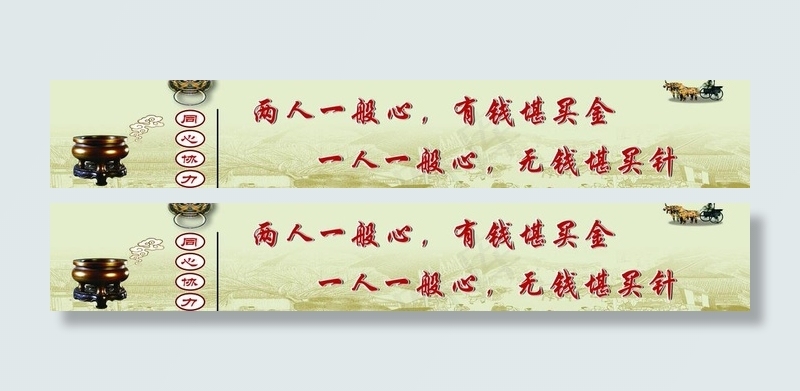 同心协力
两人一般心，有钱堪买金
一人一般心，无钱堪买针
同心协力
两人一般心，有钱堪买金
一人一般心，无钱堪买针